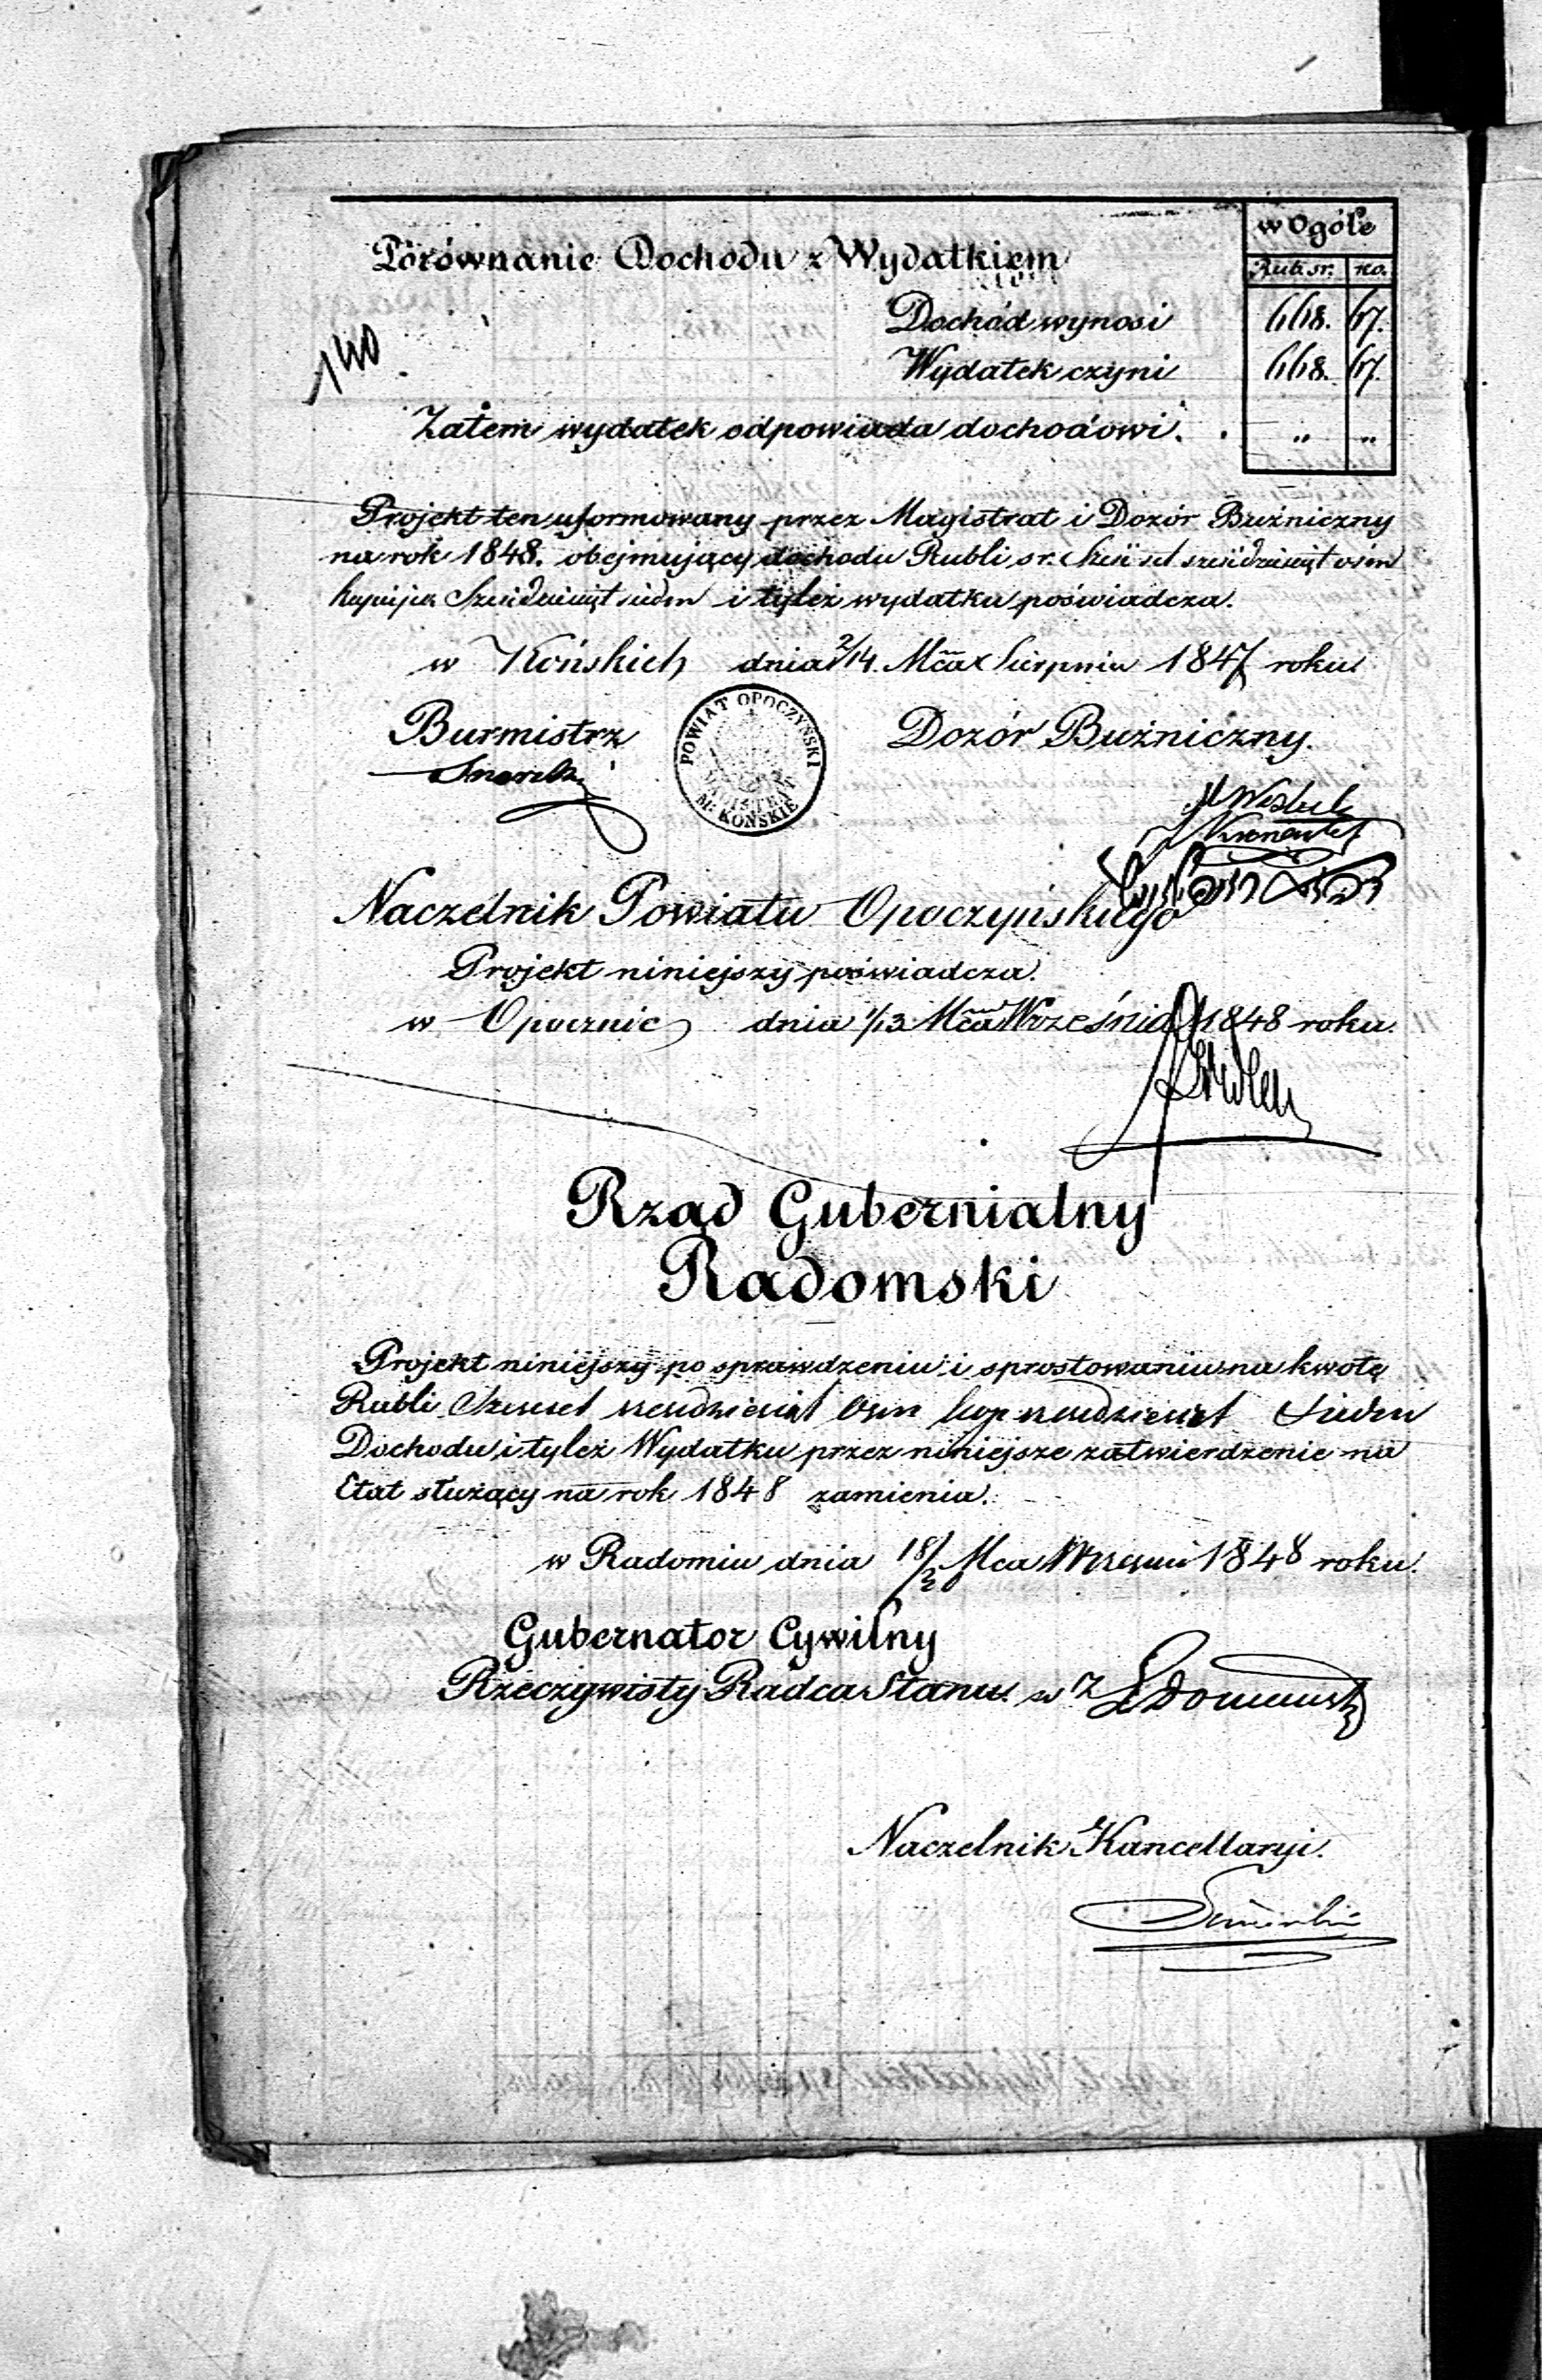 w Ogóle
Porównanie Dochodu z Wydatkiem
Rub. sr. ko.
Dochód wynosi 668. 67.
140
Wydatek czyni 668. 67.
Zatem wydatek odpowiada dochodowi. . „ „
Projekt ten uformowany przez Magistrat i Dozór Buźniczny
na rok 1848. obejmujący dochodu Rubli sr. Sześćset sześćdziesiąt ośm
kopiejek Sześćdziesiąt siedm i tyleż wydatku poświadcza.
w Końskich dnia 2/14. Mca Sierpnia 1847 roku.
Burmistrz Dozór Buźniczny.
POWIAT OPOCZYŃSKI
MAGISTRAT
M. KOŃSKIE
Naczelnik Powiatu Opoczyńskiego
Projekt niniejszy poświadcza.
w Opocznie dnia 1/13 Mca Września 1848 roku.
Rząd Gubernialny
Radomski
Projekt niniejszy po sprawdzeniu i sprostowaniu na kwotę
Rubli Szesset szesdziesiąt osm kop szesdziesiąt siedm
Dochodu i tyleż Wydatku przez niniejsze zatwierdzenie na
Etat służący na rok 1848 zamienia.
w Radomiu dnia 18/30 Mca Wrzesni 1848 roku.
Gubernator Cywilny
Rzeczywisty Radca Stanu. w z
Naczelnik Kancellaryi.